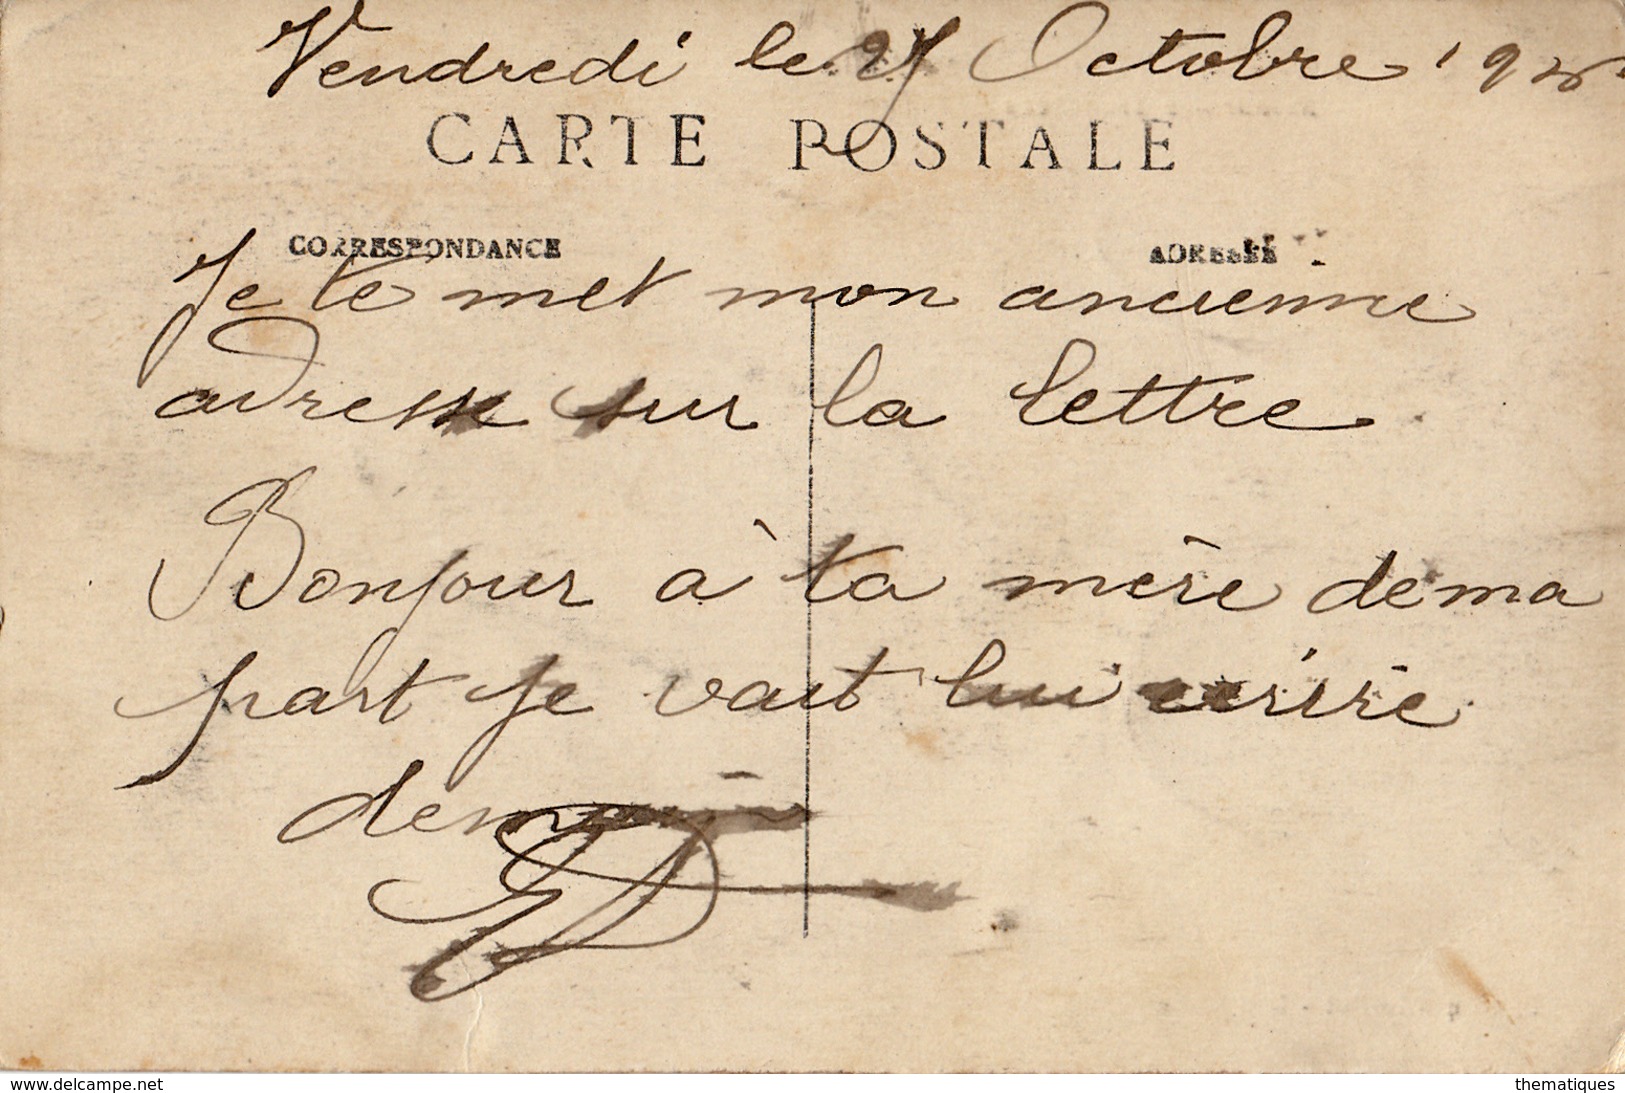 Vendredi le Octobre
CARTE POSTALE
CORRESPONDANCE ADRESSE
Je te met mon ancienne
adresse sur la lettre
Bonjour à ta mère de ma
part je vait lui écrire
demain
www.delcampe.net thematiques